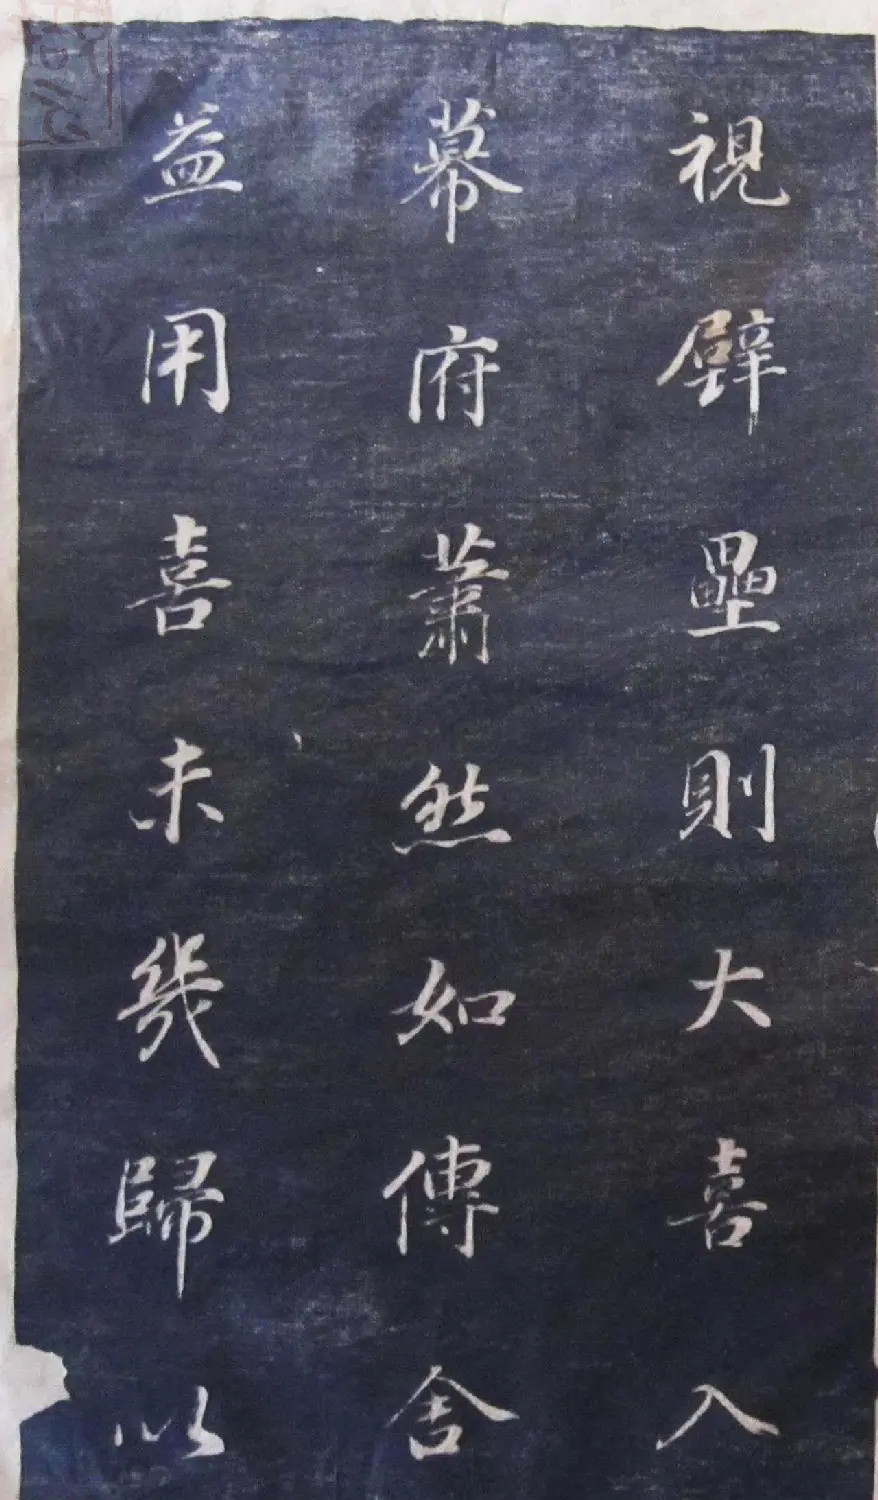 視壁壘則大喜入
幕府蕭然如傳舍
益用喜未幾歸以